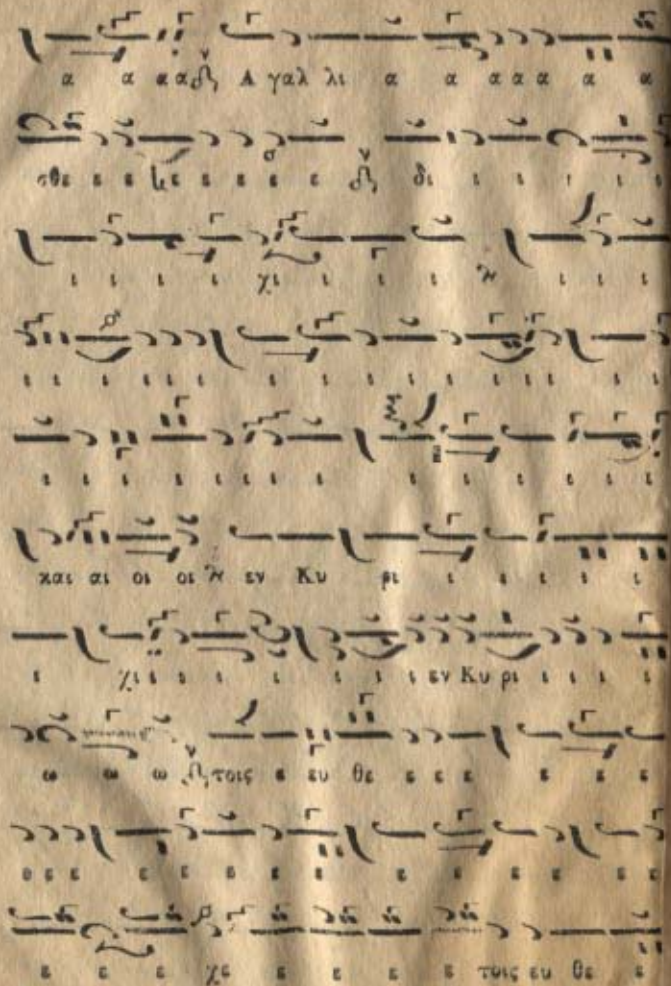 α α α α Α γαλ λι α α α α α α α
σθε ε ε κε ε ε ε ε δι ι ι ι ι ι
ι ι ι ι χι ι ι ι ι ι ι
ι ι ι ι ι ι ι ι ι ι ι ι ι ι ι ι
ι ι ι ι ι ι ι ι ι ι ι ι ι ι
και αι οι οι εν Κυ ρι ι ι ι ι ι
ι χι ι ι ι ι ι ι ι ι εν Κυ ρι ι ι ι
ω ω ω τοις ε ευ θε ε ε ε ε ε ε
θε ε ε ε ε ε ε ε ε ε ε ε ε
ε ε ε χε ε ε ε ε ε τοις ευ θε ε